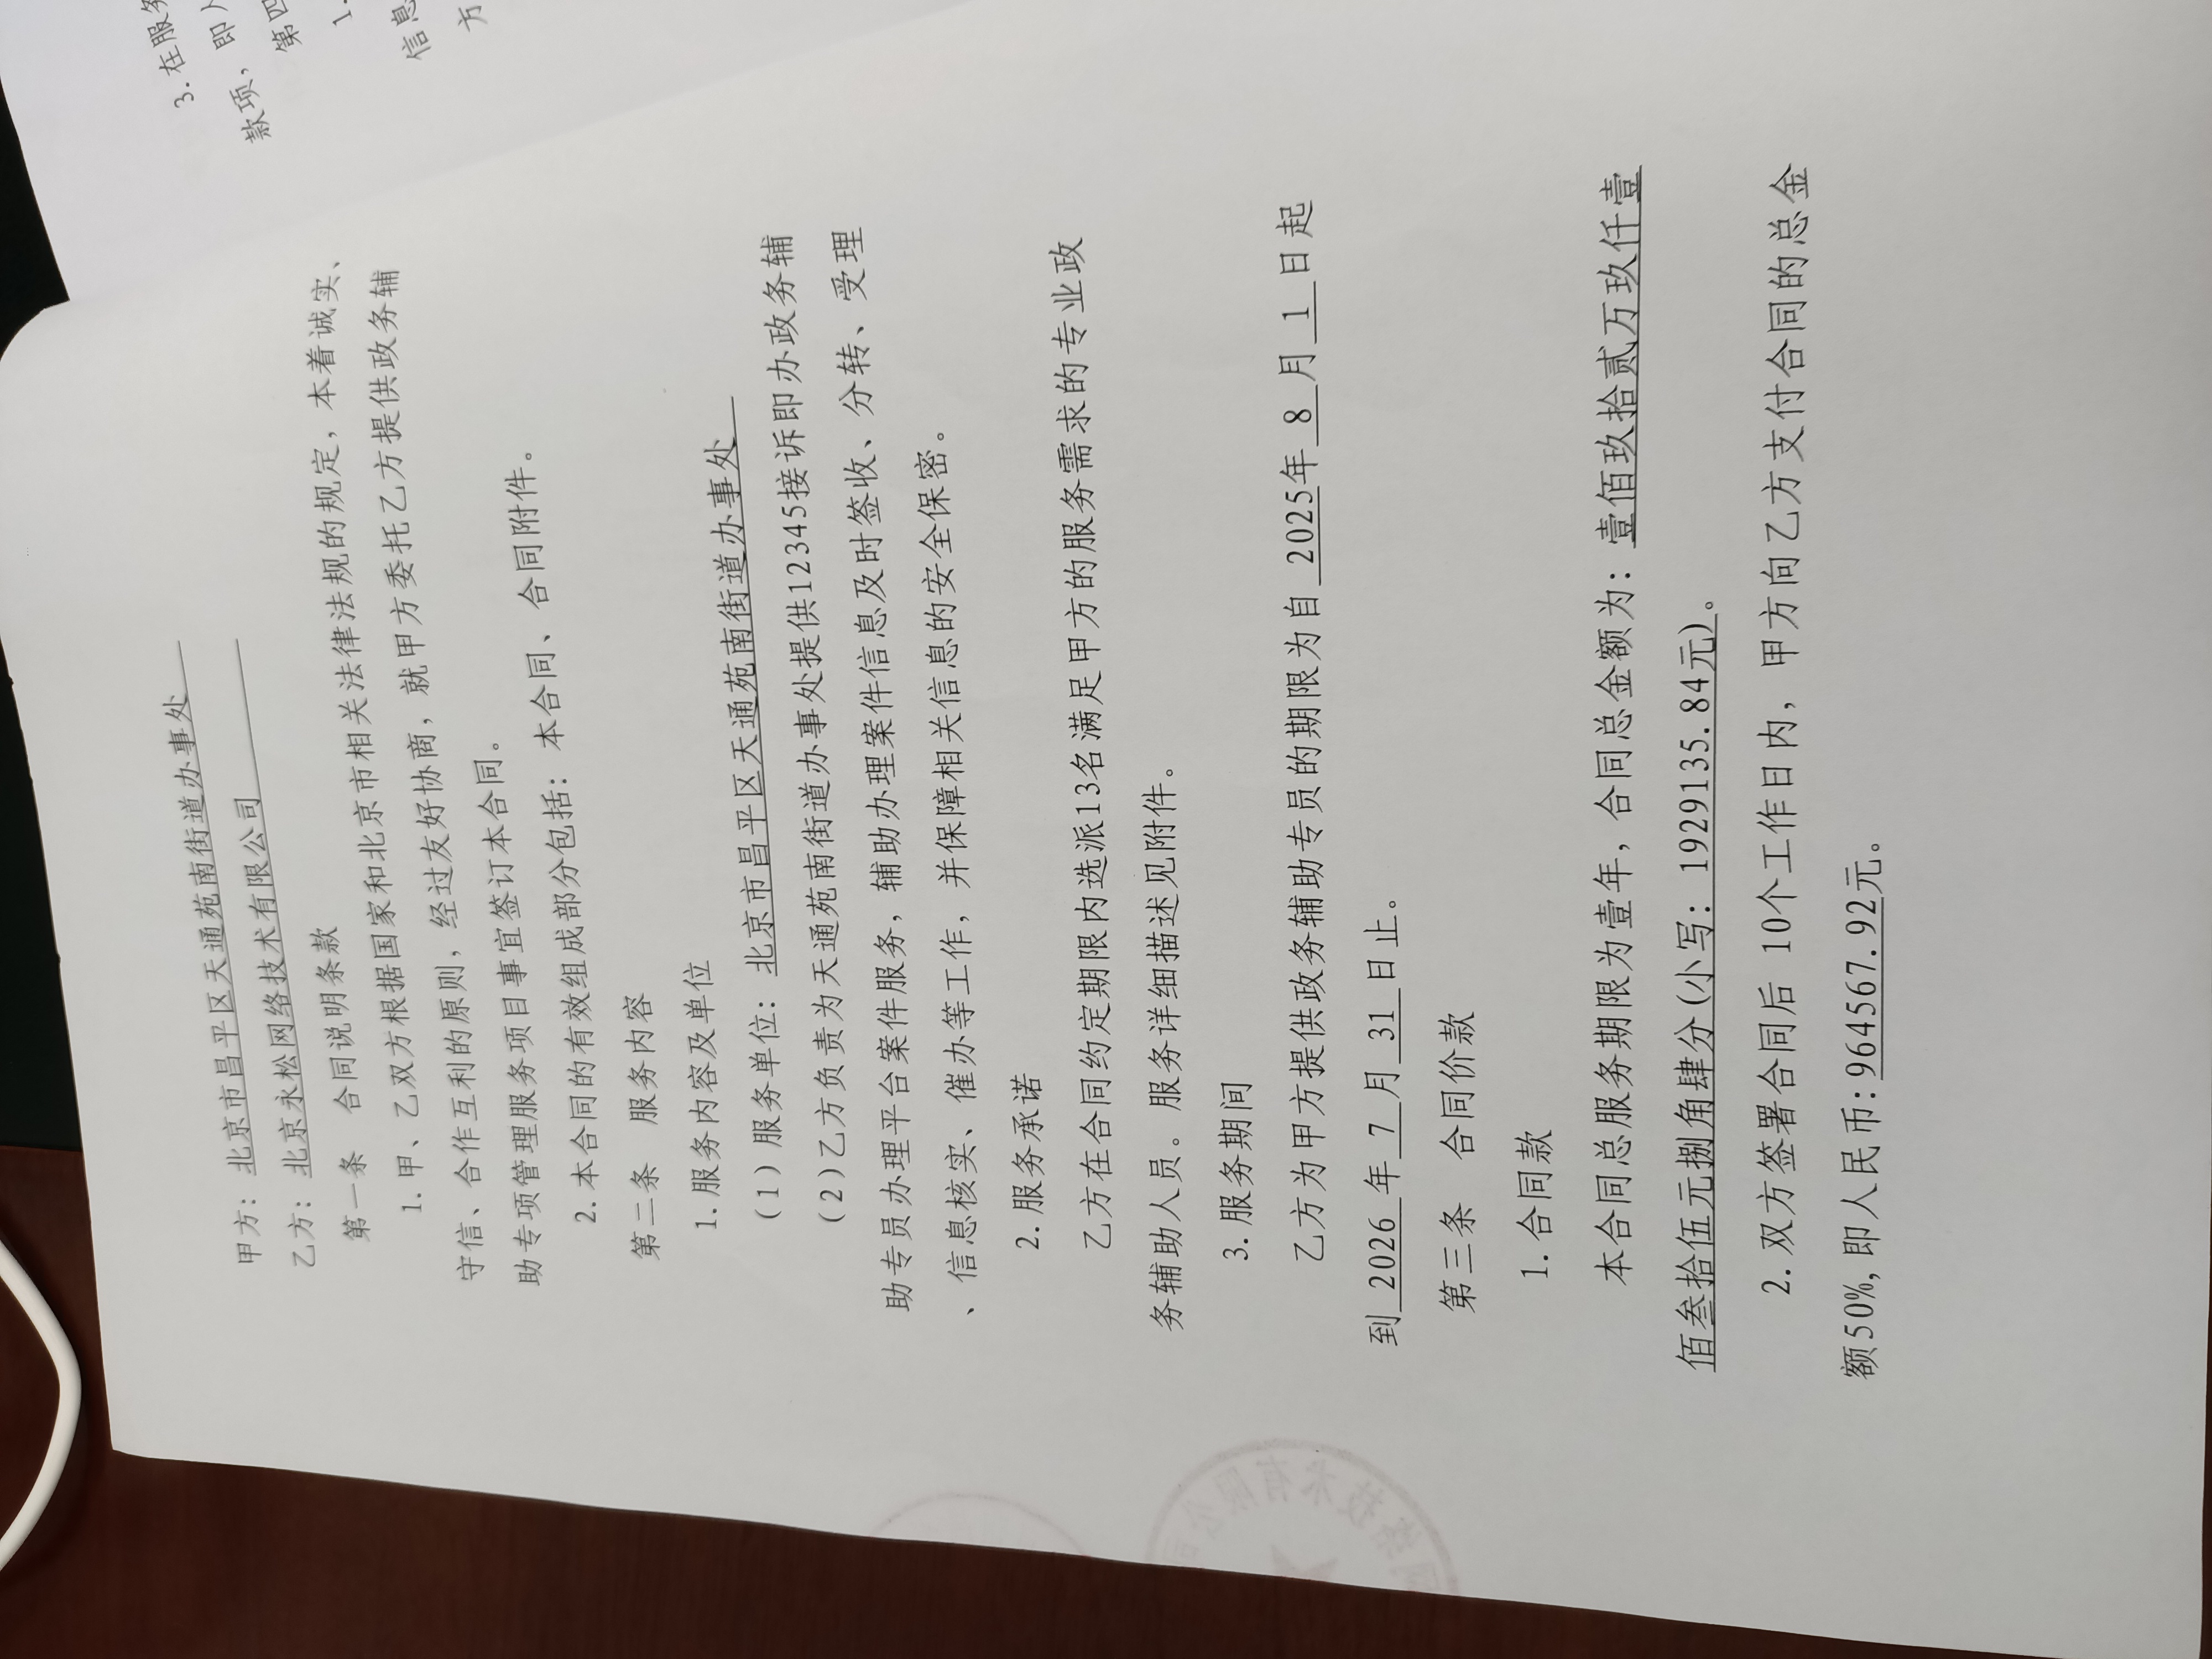 甲方：北京市昌平区天通苑南街道办事处
乙方：北京永松网络技术有限公司
第一条 合同说明条款
1.甲、乙双方根据国家和北京市相关法律法规的规定，本着诚实、
守信、合作互利的原则，经过友好协商，就甲方委托乙方提供政务辅
助专项管理服务项目事宜签订本合同。
2.本合同的有效组成部分包括：本合同、合同附件。
第二条 服务内容
1.服务内容及单位
（1）服务单位：北京市昌平区天通苑南街道办事处
（2）乙方负责为天通苑南街道办事处提供12345接诉即办政务辅
助专员办理平台案件服务，辅助办理案件信息及时签收、分转、受理
、信息核实、催办等工作，并保障相关信息的安全保密。
2.服务承诺
乙方在合同约定期限内选派13名满足甲方的服务需求的专业政
务辅助人员。服务详细描述见附件。
3.服务期间
乙方为甲方提供政务辅助专员的期限为自 2025年 8 月 1 日起
到 2026 年 7 月 31 日止。
第三条 合同价款
1.合同款
本合同总服务期限为壹年，合同总金额为：壹佰玖拾贰万玖仟壹
佰叁拾伍元捌角肆分(小写：1929135.84元)。
2.双方签署合同后 10个工作日内，甲方向乙方支付合同的总金
额50%,即人民币:964567.92元。
3.在服务
款项，即
第四
1.
信息
方
网络技术有限公司